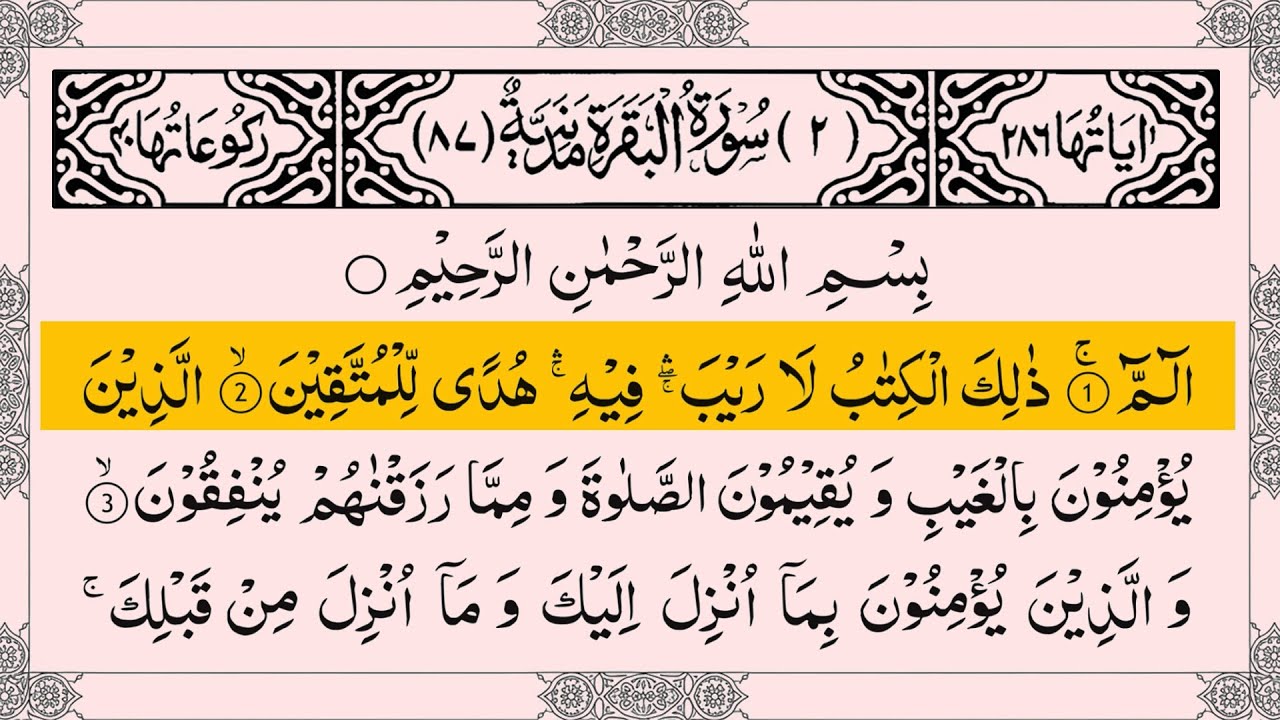 اٰيَاتُهَا ٢٨٦ (٢) سُوْرَةُ الْبَقَرَةِ مَدَنِيَّةٌ (٨٧) رُكُوْعَاتُهَا ٤٠
بِسْمِ اللّٰهِ الرَّحْمٰنِ الرَّحِيْمِ ○
الٓمّٓ ① ۚ ذٰلِكَ الْكِتٰبُ لَا رَيْبَ ۛۖۚ فِيْهِ ۛۚ هُدًى لِّلْمُتَّقِيْنَ ② ۙ الَّذِيْنَ
يُؤْمِنُوْنَ بِالْغَيْبِ وَ يُقِيْمُوْنَ الصَّلٰوةَ وَ مِمَّا رَزَقْنٰهُمْ يُنْفِقُوْنَ ③ ۙ
وَ الَّذِيْنَ يُؤْمِنُوْنَ بِمَاۤ اُنْزِلَ اِلَيْكَ وَ مَاۤ اُنْزِلَ مِنْ قَبْلِكَ ۚ